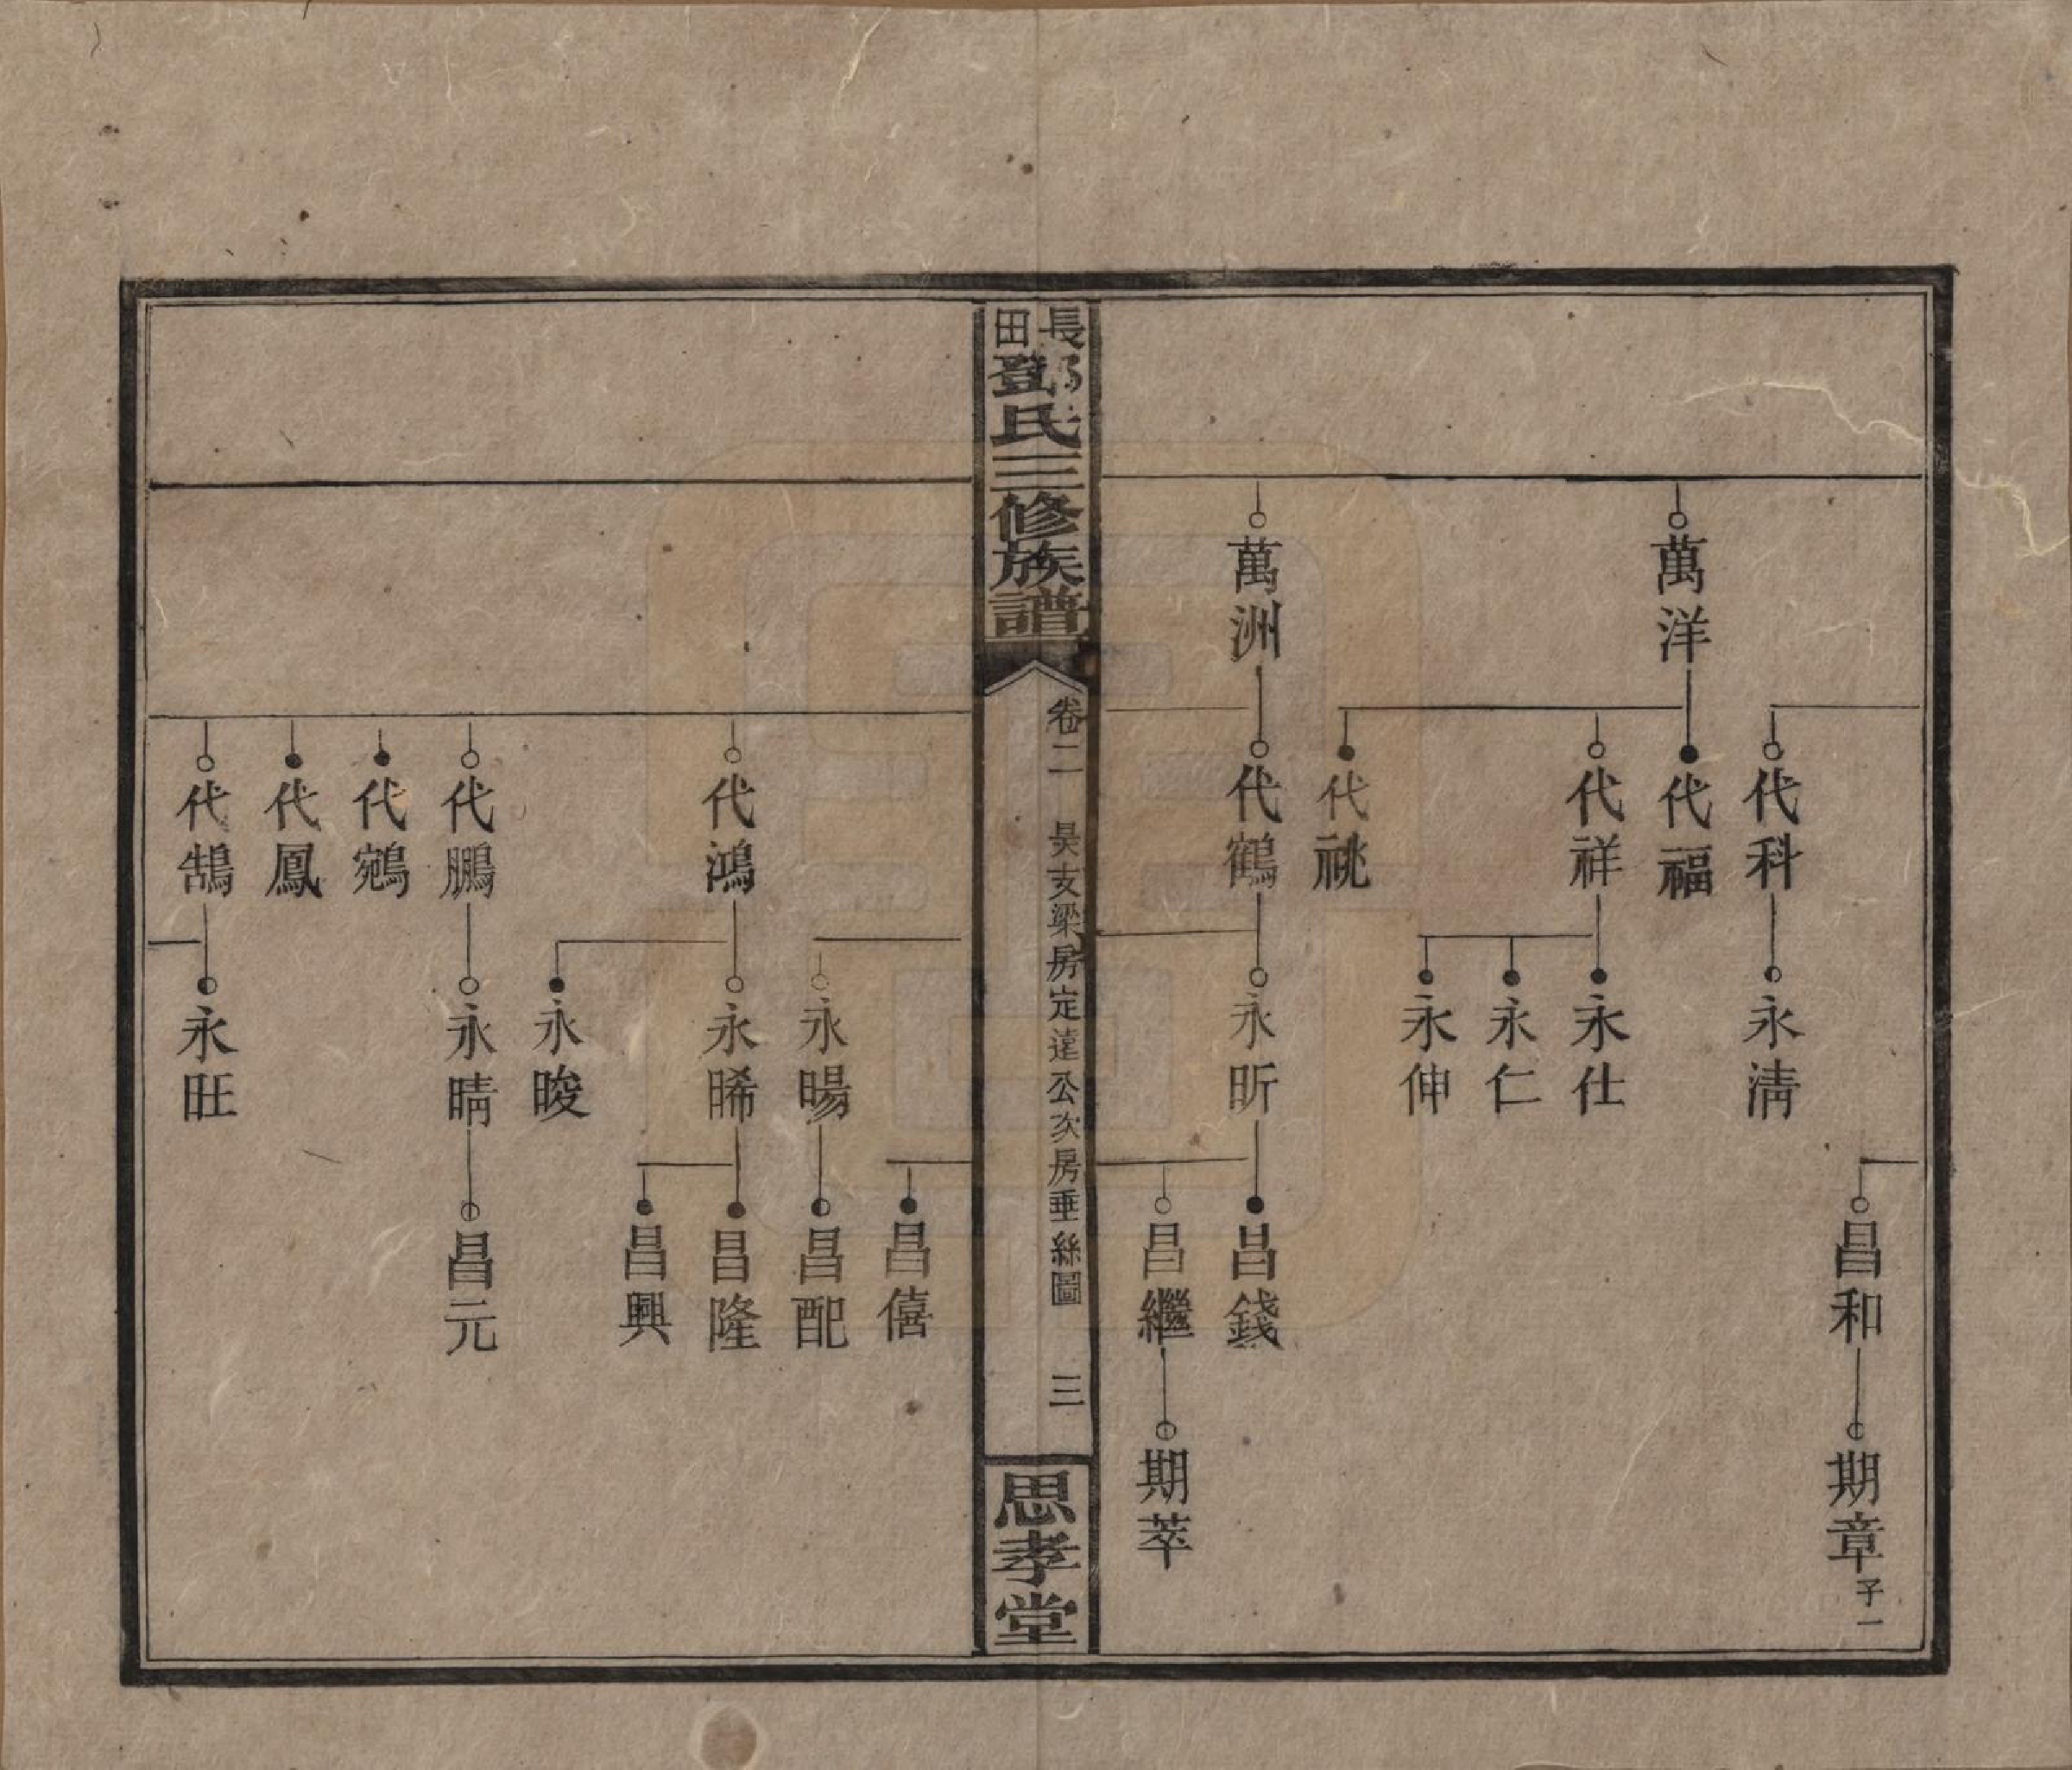 昌和
期章 子一
代科
永清
萬洋
代福
代祥
永仕
永仁
永伸
代祧
萬洲
代鶴
永昕
昌錢
昌繼
期萃
長田鄧氏三修族譜
卷二 昊支梁房定達公次房垂絲圖 三
思孝堂
昌僖
永暘
昌配
代鴻
永晞
昌隆
昌興
永晙
代鵬
永晴
昌元
代鵷
代鳳
代鵠
永旺